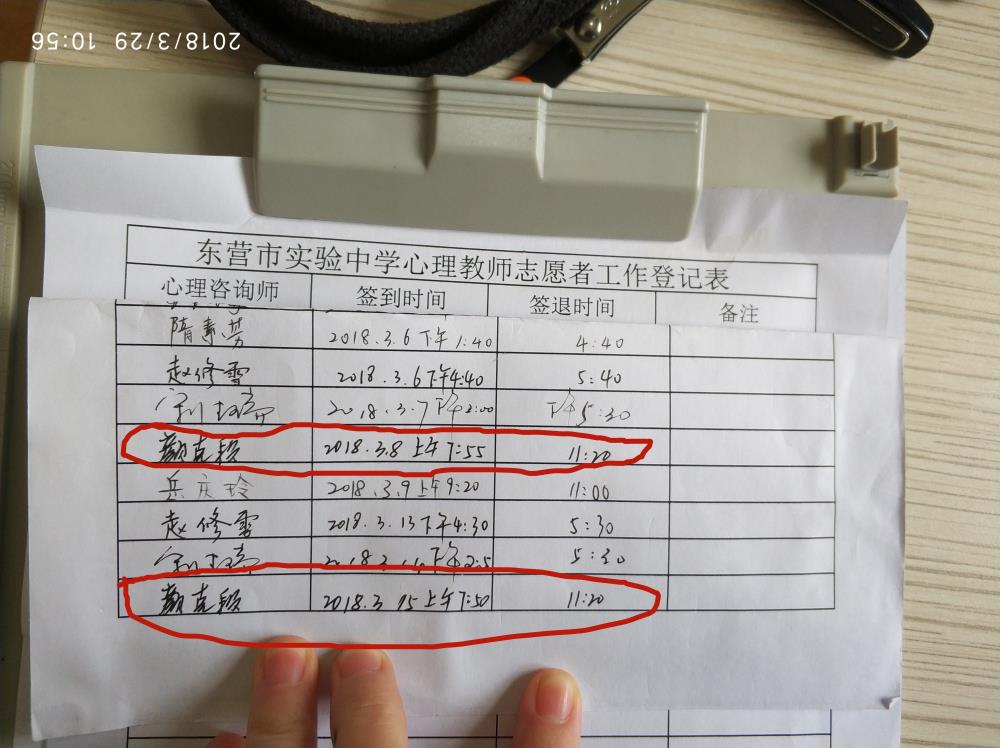 2018/3/29 10:56
东营市实验中学心理教师志愿者工作登记表
心理咨询师 签到时间 签退时间 备注
隋素芳 2018.3.6 下午 1:40 4:40
赵修雪 2018.3.6 下午4:40 5:40
2018.3.7 下午2:00 下午5:30
颜克段 2018.3.8 上午 7:55 11:20
岳庆玲 2018.3.9 上午9:20 11:00
赵修雪 2018.3.13 下午4:30 5:30
5:30
颜克段 2018.3 15 上午7:50 11:20